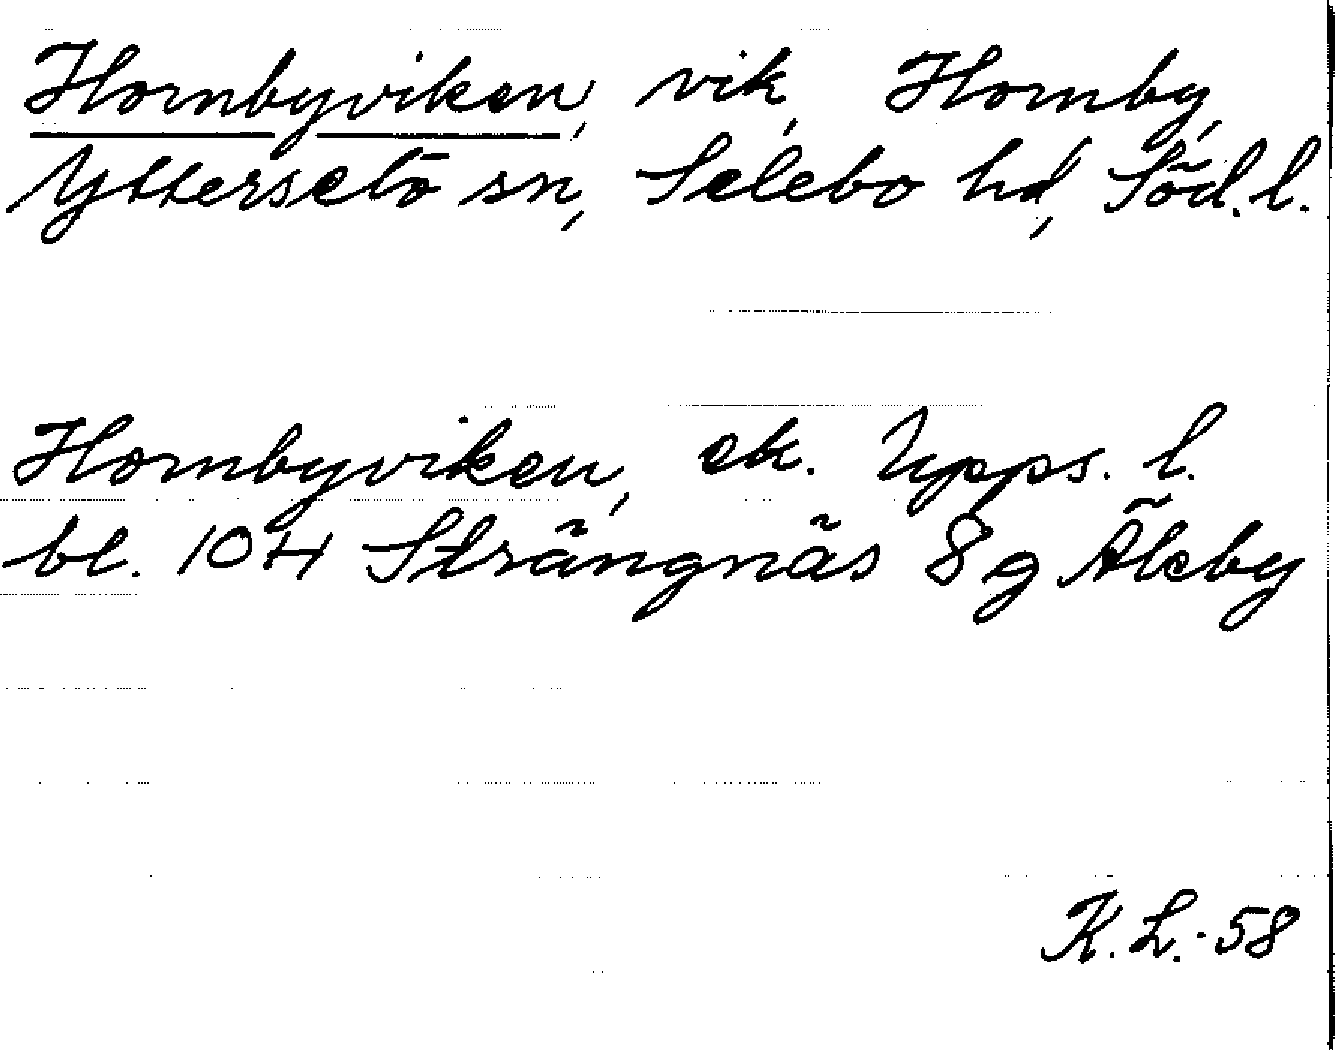 Hornbyviken, vik, Hornby,
Ytterselö sn, Selebo hd, Söd. l.
Hornbyviken, ek. Upps. l.
bl. 104 Strängnäs 8 g Åleby
K. L. -58